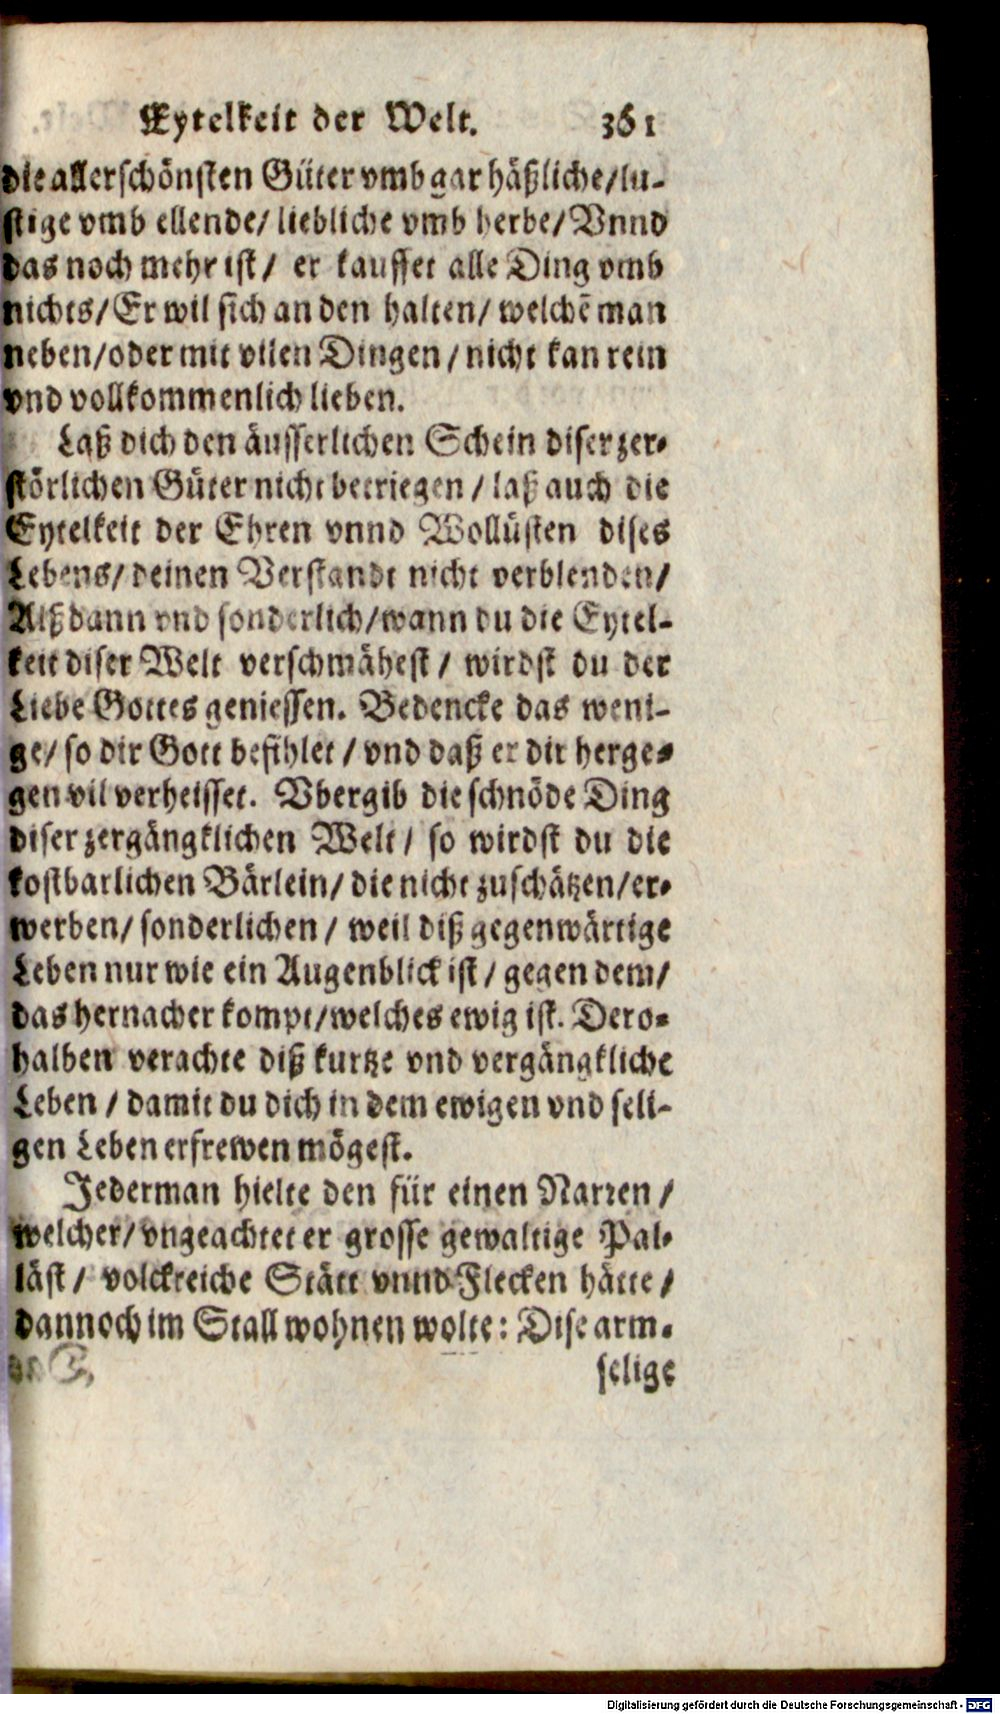 Eytelkeit der Welt. 361
die allerschönsten Güter vmb gar häßliche/lu-
stige vmb ellende/ liebliche vmb herbe/ Vnnd
das noch mehr ist/ er kauffet alle Ding vmb
nichts/ Er wil sich an den halten/ welchē man
neben/oder mit vilen Dingen/ nicht kan rein
vnd vollkommenlich lieben.
Laß dich den äusserlichen Schein diser zer-
störlichen Güter nicht betriegen/ laß auch die
Eytelkeit der Ehren vnnd Wollüsten dises
Lebens/ deinen Verstandt nicht verblenden/
Alßdann vnd sonderlich/wann du die Eytel-
keit diser Welt verschmähest/ wirdst du der
Liebe Gottes geniessen. Bedencke das weni-
ge/ so dir Gott befihlet/ vnd daß er dir herge-
gen vil verheisset. Vbergib die schnöde Ding
diser zergängklichen Welt/ so wirdst du die
kostbarlichen Bärlein/ die nicht zuschätzen/er-
werben/ sonderlichen/ weil diß gegenwärtige
Leben nur wie ein Augenblick ist/ gegen dem/
das hernacher kompt/welches ewig ist. Dero-
halben verachte diß kurtze vnd vergängkliche
Leben/ damit du dich in dem ewigen vnd seli-
gen Leben erfrewen mögest.
Jederman hielte den für einen Narren/
welcher/ vngeachtet er grosse gewaltige Pal-
läst/ volckreiche Stätt vnnd Flecken hätte/
dannoch im Stall wohnen wolte: Dise arm-
selige
Digitalisierung gefördert durch die Deutsche Forschungsgemeinschaft - DFG